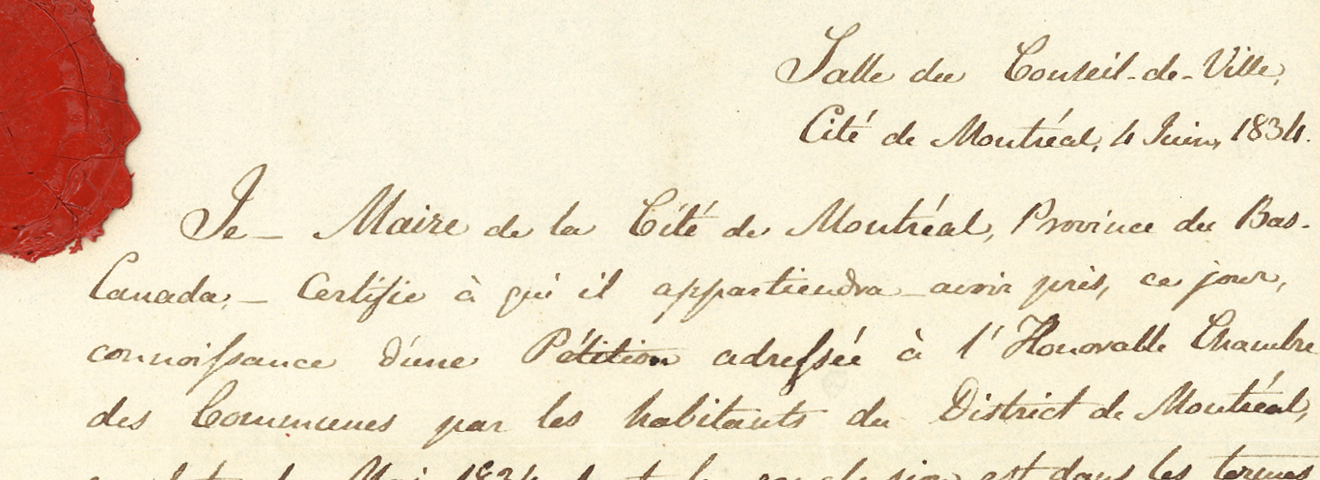 Salle du Conseil-de-Ville,
Cité de Montréal, 4 Juin, 1834.
Je — Maire de la Cité de Montréal, Province du Bas-
Canada, — Certifie à qui il appartiendra — avoir pris, ce jour,
connoissance d'une Pétition adressée à l'Honorable Chambre
des Communes par les habitants du District de Montréal,
Mai 1834 est dans les termes